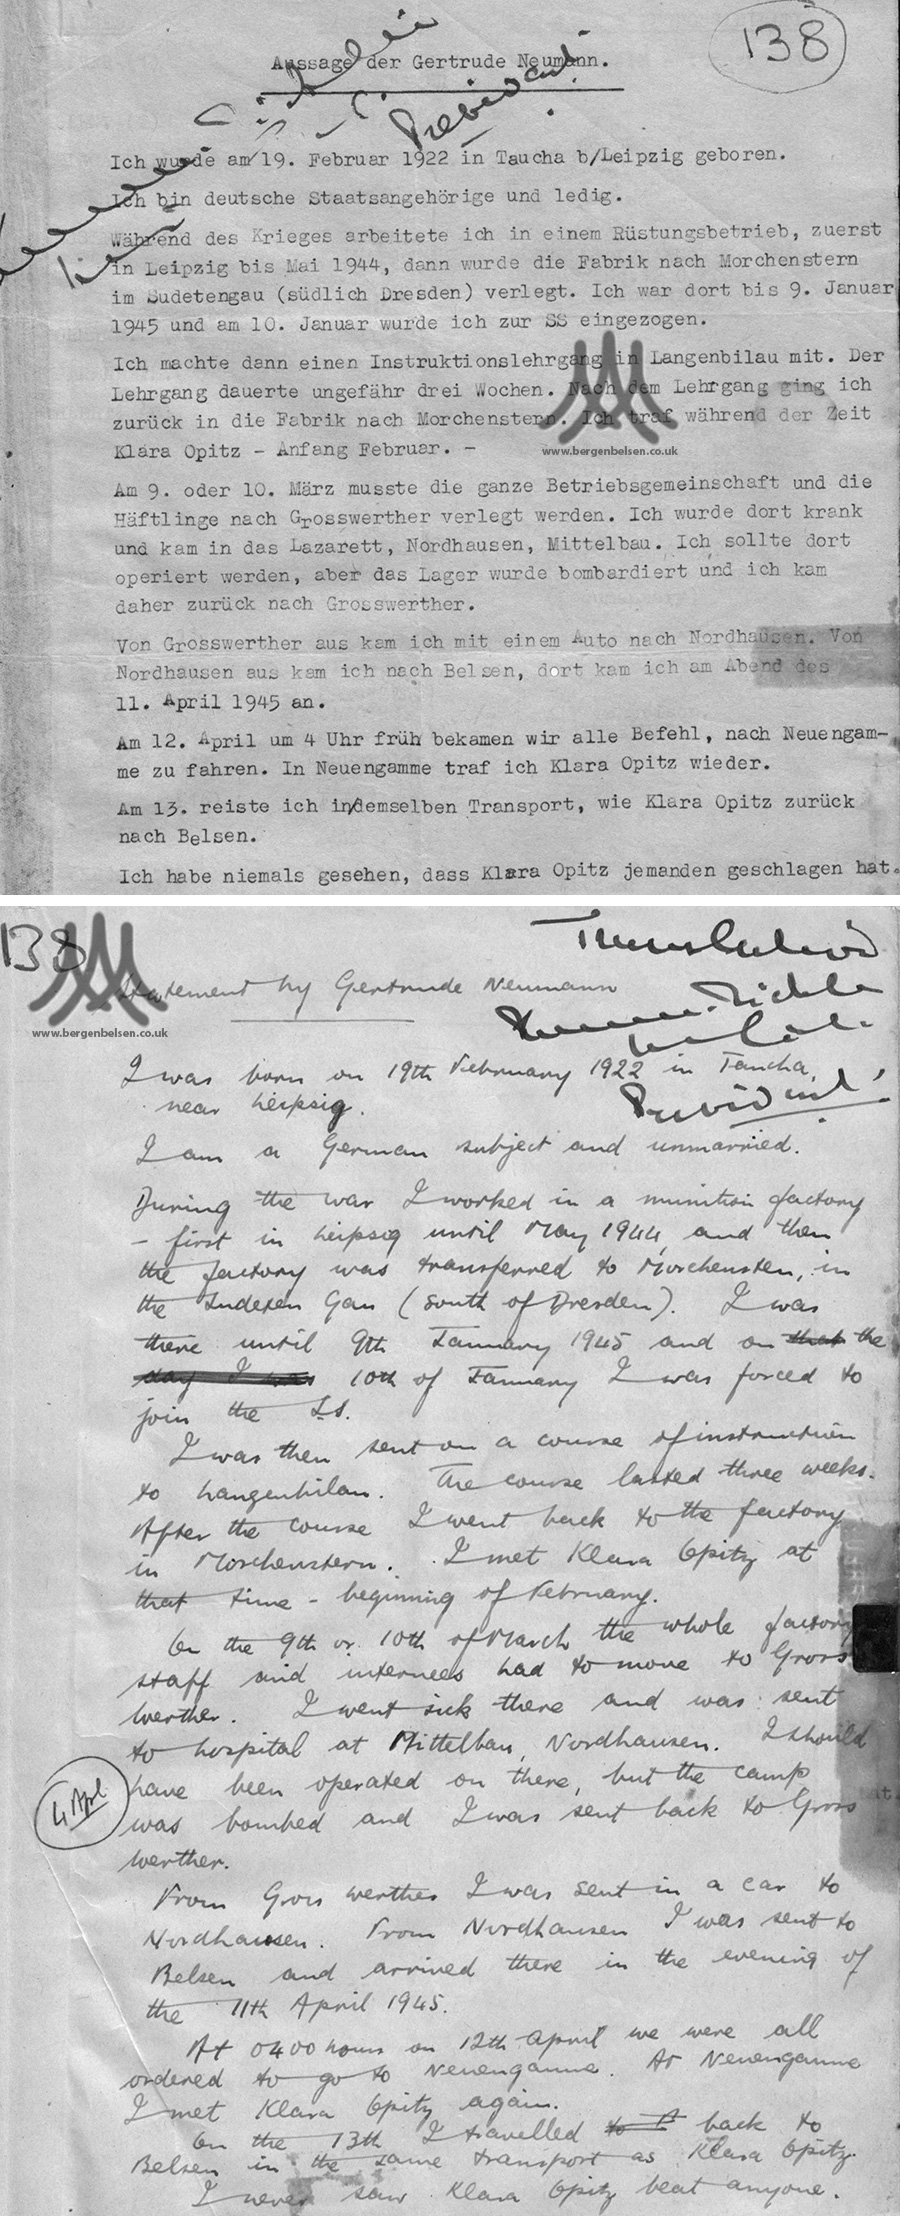 138
Aussage der Gertrude Neumann.
President.
Ich wurde am/19. Februar 1922 in Taucha b/Leipzig geboren.
Ich bin deutsche Staatsangehörige und ledig.
Während des Krieges arbeitete ich in einem Rüstungsbetrieb, zuerst
in Leipzig bis Mai 1944, dann wurde die Fabrik nach Morchenstern
im Sudetengau (südlich Dresden) verlegt. Ich war dort bis 9. Januar
1945 und am 10. Januar wurde ich zur SS eingezogen.
Ich machte dann einen Instruktionslehrgang in Langenbilau mit. Der
Lehrgang dauerte ungefähr drei Wochen. Nach dem Lehrgang ging ich
zurück in die Fabrik nach Morchenstern. Ich traf während der Zeit
Klara Opitz - Anfang Februar. -
www.bergenbelsen.co.uk
Am 9. oder 10. März musste die ganze Betriebsgemeinschaft und die
Häftlinge nach Grosswerther verlegt werden. Ich wurde dort krank
und kam in das Lazarett, Nordhausen, Mittelbau. Ich sollte dort
operiert werden, aber das Lager wurde bombardiert und ich kam
daher zurück nach Grosswerther.
Von Grosswerther aus kam ich mit einem Auto nach Nordhausen. Von
Nordhausen aus kam ich nach Belsen, dort kam ich am Abend des
11. April 1945 an.
Am 12. April um 4 Uhr früh bekamen wir alle Befehl, nach Neuengam-
me zu fahren. In Neuengamme traf ich Klara Opitz wieder.
Am 13. reiste ich in/demselben Transport, wie Klara Opitz zurück
nach Belsen.
Ich habe niemals gesehen, dass Klara Opitz jemanden geschlagen hat.
138
www.bergenbelsen.co.uk
Statement by Gertrude Neumann
President.
I was born on 19th February 1922 in Taucha,
near Leipsig.
I am a German subject and unmarried.
During the war I worked in a munition factory
- first in Leipsig until May 1944, and then
the factory was transferred to Morchensten, in
the Sudeten Gau (south of Dresden). I was
there until 9th January 1945 and on that the
day I was 10th of January I was forced to
join the SS.
I was then sent on a course of instruction
to Langenbilau. The course lasted three weeks.
After the course I went back to the factory
in Morchenstern. I met Klara Opitz at
that time - beginning of February.
On the 9th or 10th of March the whole factory
staff and internees had to move to Gross
werther. I went sick there and was sent
to hospital at Mittelbau, Nordhausen. I should
have been operated on there, but the camp
4 Apl
was bombed and I was sent back to Gross
werther.
From Gross werther I was sent in a car to
Nordhausen. From Nordhausen I was sent to
Belsen and arrived there in the evening of
the 11th April 1945.
At 0400 hours on 12th April we were all
ordered to go to Neuengamme. At Neuengamme
I met Klara Opitz again.
On the 13th I travelled back to
Belsen in the same transport as Klara Opitz.
I never saw Klara Opitz beat anyone.